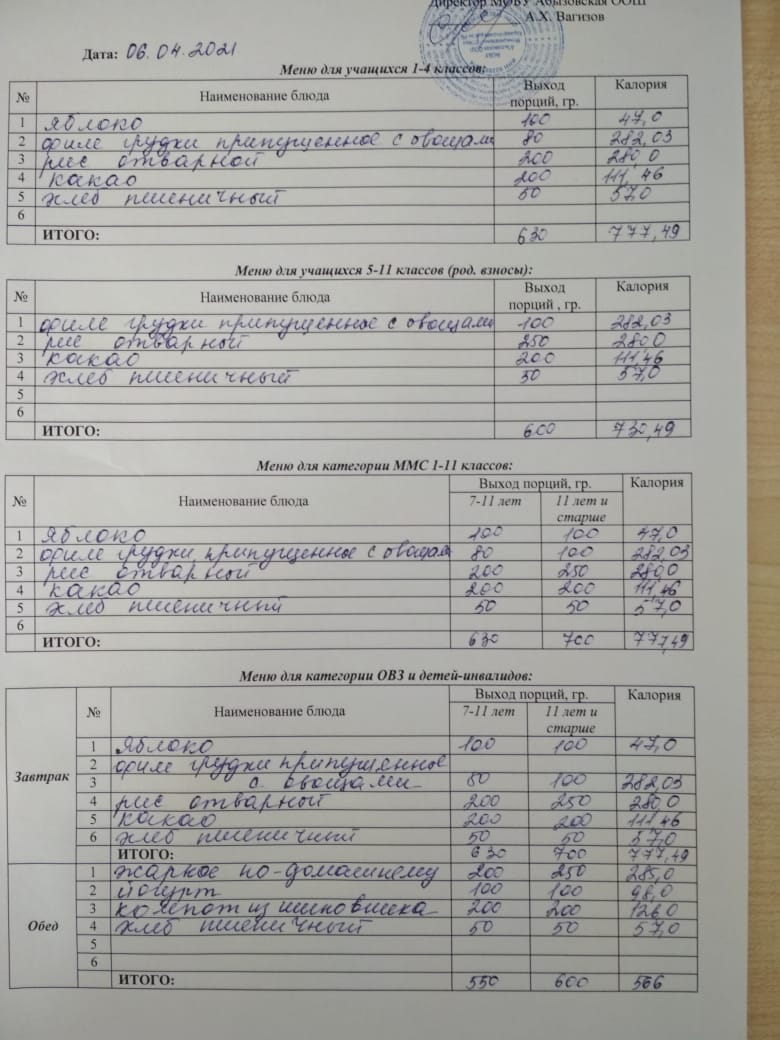 Директор МОБУ Абызовская ООШ
А.Х. Вагизов
Дата: 06.04.2021
Меню для учащихся 1-4 классов:
№ Наименование блюда Выход порций, гр. Калория
1 яблоко 100 47,0
2 филе грудки припущенное с овощами 80 282,03
3 рис отварной 200 280,0
4 какао 200 111,46
5 хлеб пшеничный 50 57,0
6
ИТОГО: 630 777,49
Меню для учащихся 5-11 классов (род. взносы):
№ Наименование блюда Выход порций , гр. Калория
1 филе грудки припущенное с овощами 100 282,03
2 рис отварный 250 280,0
3 какао 200 111,46
4 хлеб пшеничный 50 57,0
5
6
ИТОГО: 600 730,49
Меню для категории ММС 1-11 классов:
№ Наименование блюда Выход порций, гр. Калория
7-11 лет 11 лет и старше
1 яблоко 100 100 47,0
2 филе грудки припущенное с овощам 80 100 282,03
3 рис отварный 200 250 280,0
4 какао 200 200 111,46
5 хлеб пшеничный 50 50 57,0
6
ИТОГО: 630 700 777,49
Меню для категории ОВЗ и детей-инвалидов:
№ Наименование блюда Выход порций, гр. Калория
7-11 лет 11 лет и старше
Завтрак
1 яблоко 100 100 47,0
2 филе грудки припущенное
3 с овощами 80 100 282,03
4 рис отварный 200 250 280,0
5 какао 200 200 111,46
6 хлеб пшеничный 50 50 57,0
ИТОГО: 630 700 777,49
Обед
1 жаркое по-домашнему 200 250 285,0
2 йогурт 100 100 98,0
3 компот из шиповника 200 200 126,0
4 хлеб пшеничный 50 50 57,0
5
6
ИТОГО: 550 600 566